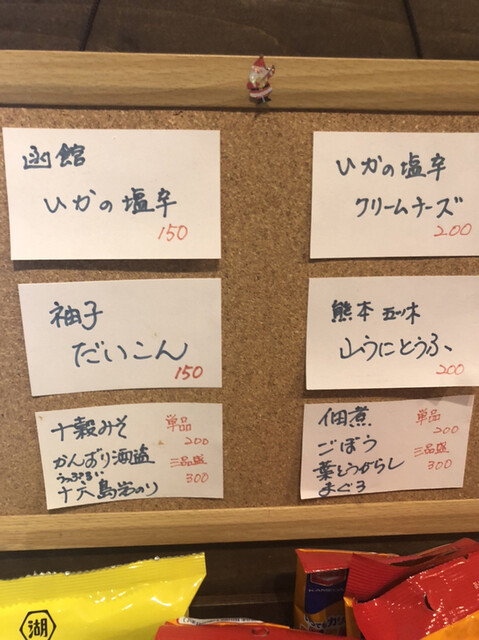 函館
いかの塩辛
150
いかの塩辛
クリームチーズ
200
袖子
だいこん
150
熊本 五ツ木
山うにとうふ
200
十穀みそ
かんずり酒盗
うっぷるい
十六島岩のり
単品
200
三品盛
300
佃煮
ごぼう
葉とうがらし
まぐろ
単品
200
三品盛
300
湖